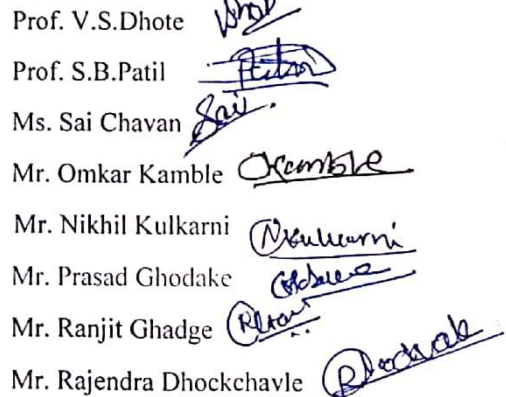 Prof. V.S.Dhote
Prof. S.B.Patil Patil
Ms. Sai Chavan Sai
Mr. Omkar Kamble OKamble
Mr. Nikhil Kulkarni NKulkarni
Mr. Prasad Ghodake
Mr. Ranjit Ghadge
Mr. Rajendra Dhockchavle